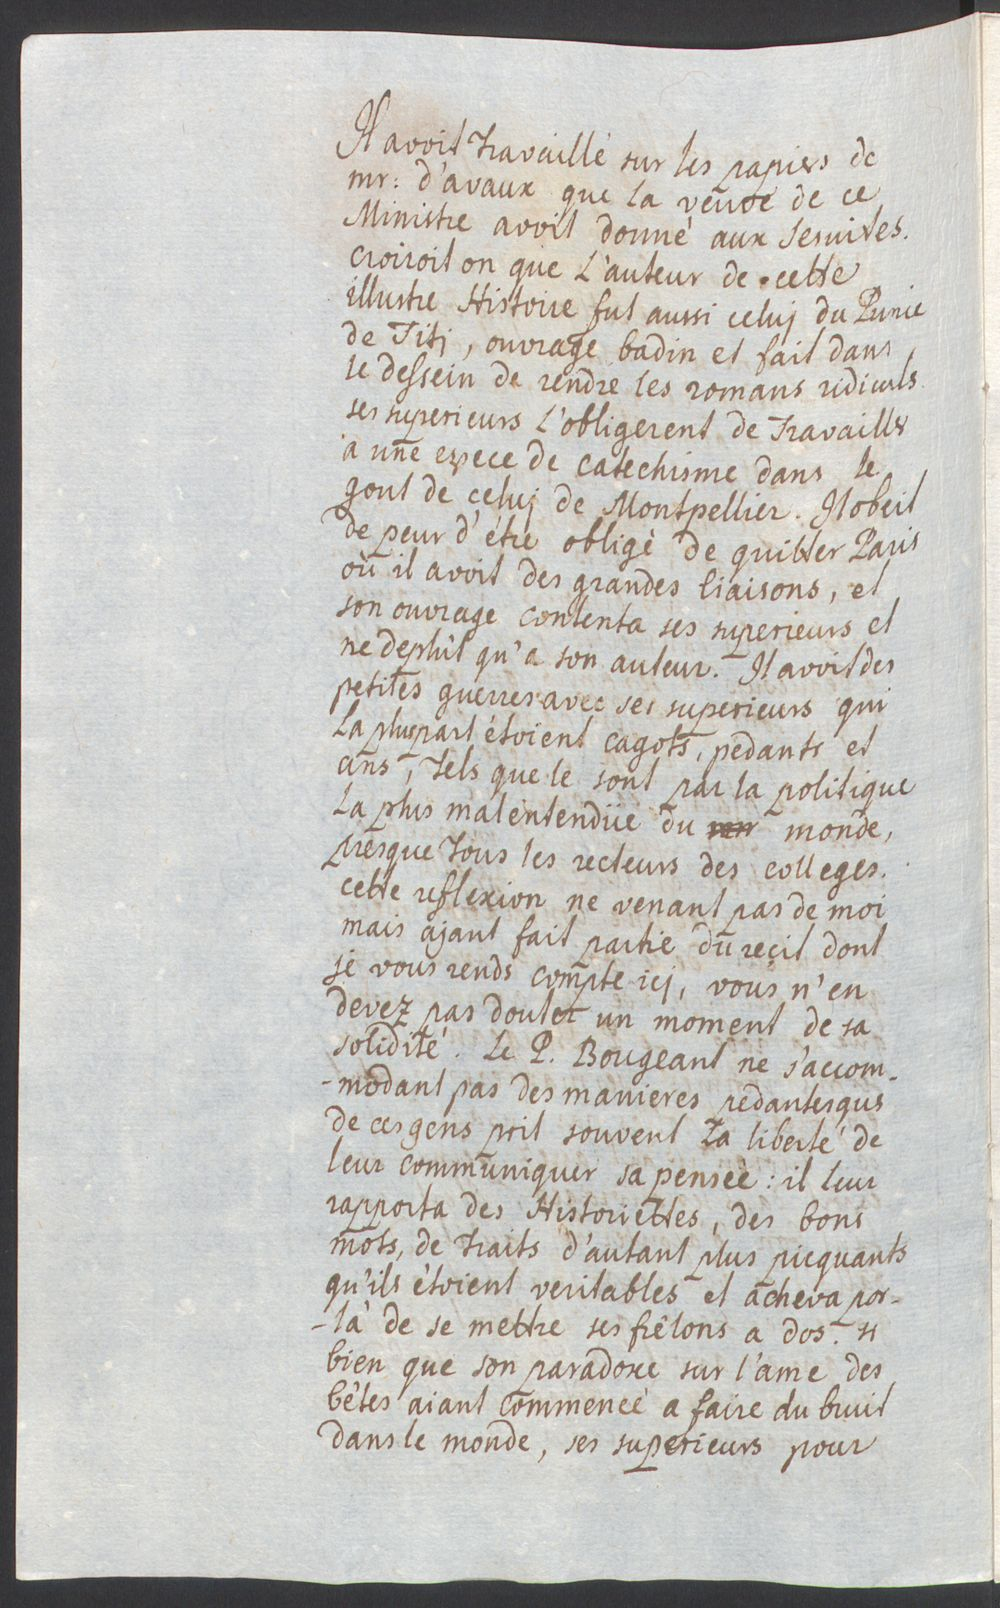 Il avoit travaillé sur les papiers de
mr: d'avaux que la veuve de ce
Ministre avoit donné aux Jesuites.
croiroit on que l'auteur de cette
illustre Histoire fut aussi celuj du Prince
de Titj, ouvrage badin et fait dans
le dessein de rendre les romans ridiculs
ses superieurs l'obligerent de travailler
a une espece de catechisme dans le
gout de celuj de Montpellier. Il obeit
de peur d'étre obligé de quitter Paris
où il avoit des grandes liaisons, et
son ouvrage contenta ses superieurs et
ne deplût qu'a son auteur. Il avoit des
petites guerres avec ses superieurs qui
la pluspart étoient cagots, pedants et
ans, tels que le sont par la politique
la plus malentendüe du monde,
presque tous les recteurs des colleges.
cette reflexion ne venant pas de moi
mais ajant fait partie du recit dont
je vous rends compte icj, vous n'en
devez pas douter un moment de sa
solidité. Le P. Bougeant ne s'accom-
-modant pas des manieres pedantesqus
de ces gens prit souvent la liberté de
leur communiquer sa pensée: il leur
rapporta des Historiettes, des bons
mots, de traits d'autant plus picquants
qu'ils étoient veritables et acheva par-
-là de se mettre ses frêlons a dos. si
bien que son paradoxe sur l'ame des
bêtes aiant commencé a faire du bruit
dans le monde, ses superieurs pour